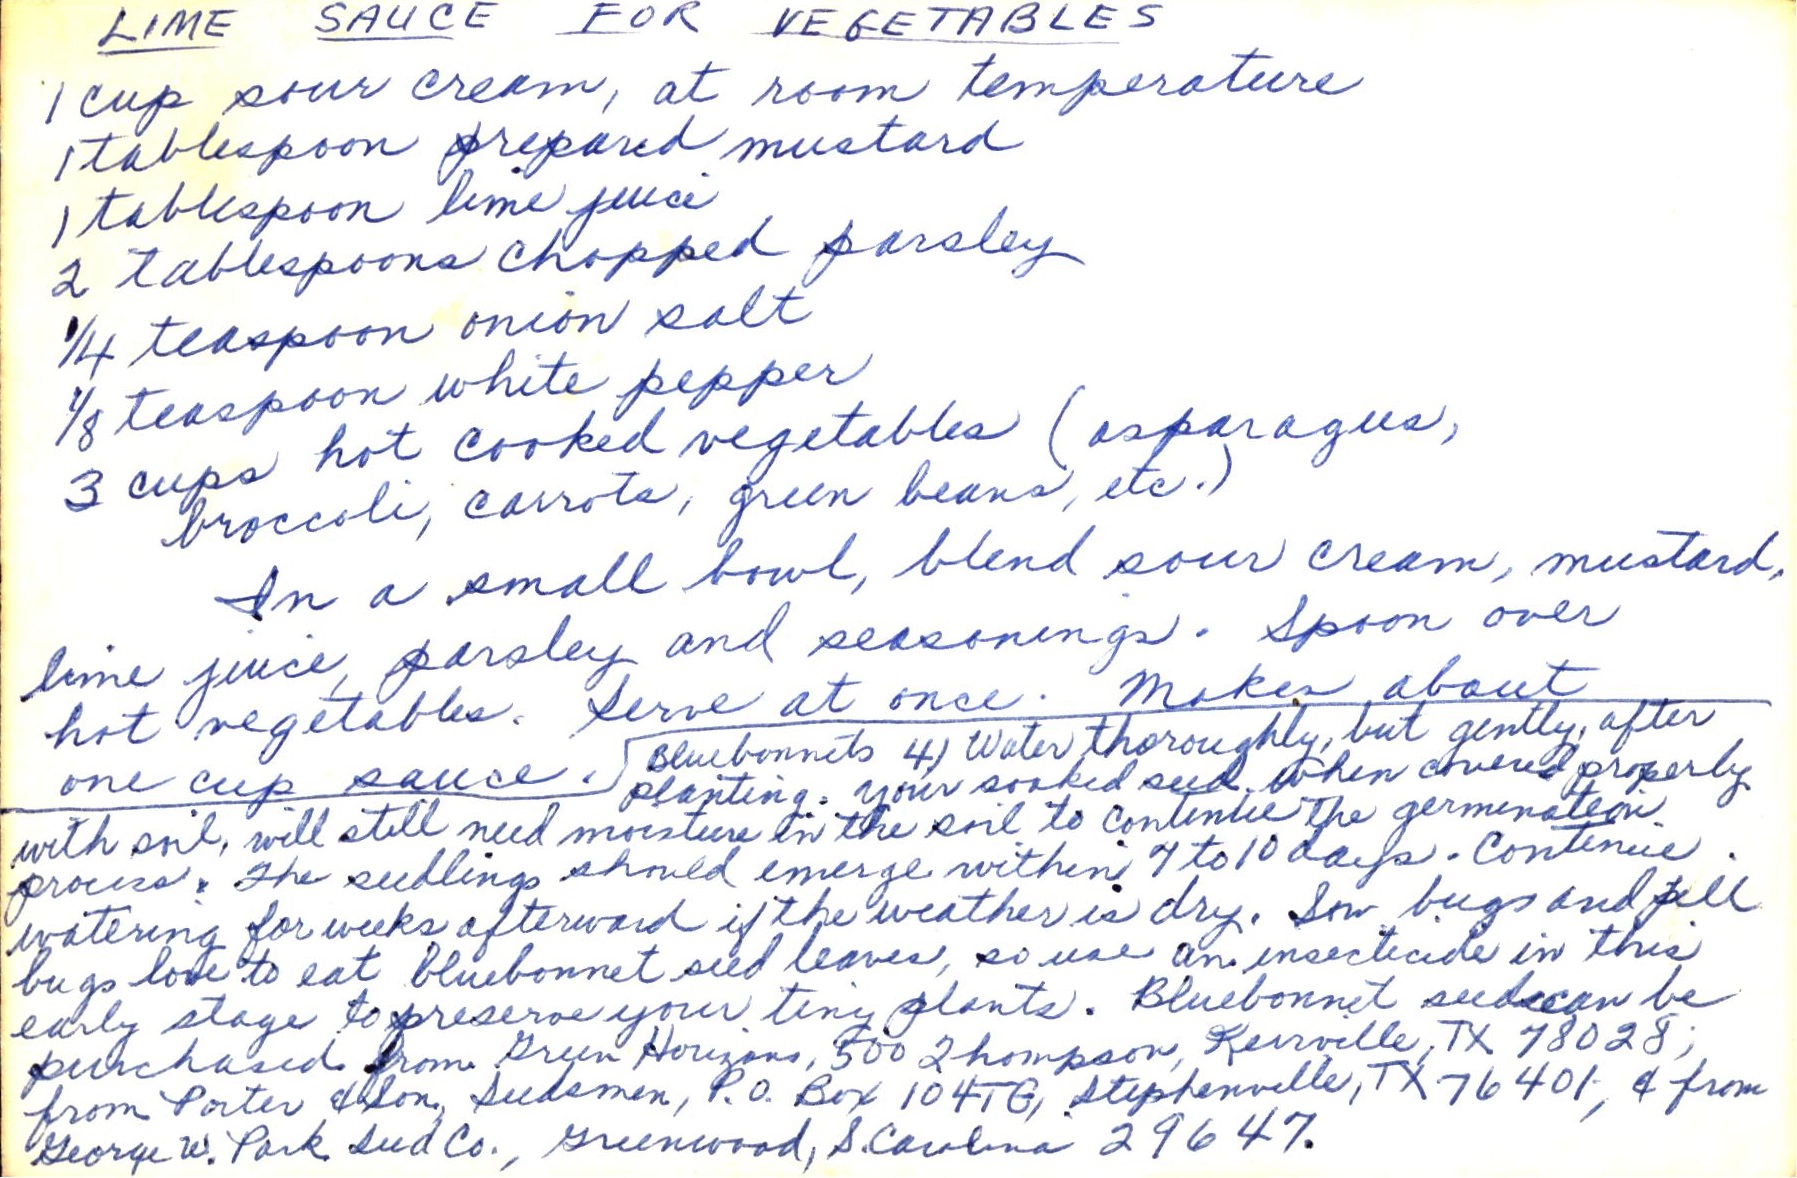 LIME SAUCE FOR VEGETABLES
1 cup sour cream, at room temperature
1 tablespoon prepared mustard
1 tablespoon lime juice
2 tablespoons chopped parsley
1/4 teaspoon onion salt
1/8 teaspoon white pepper
3 cups hot cooked vegetables (asparagus,
broccoli, carrots, green beans, etc.)
In a small bowl, blend sour cream, mustard,
lime juice, parsley and seasonings. Spoon over
hot vegetables. Serve at once. Makes about
one cup sauce.
Bluebonnets 4) Water thoroughly, but gently, after
planting. Your soaked seed, when covered properly
with soil, will still need moisture in the soil to continue the germination
process. The seedlings should emerge within 7 to 10 days. Continue
watering for weeks afterward if the weather is dry. Sow bugs and pill
bugs love to eat bluebonnet seed leaves, so use an insecticide in this
early stage to preserve your tiny plants. Bluebonnet seeds can be
purchased from Green Horizons, 500 Thompson, Kerrville, TX 78028;
from Porter & Son, Seedsmen, P.O. Box 104TG, Stephenville, TX 76401, & from
George W. Park Seed Co., Greenwood, S. Carolina 29647.